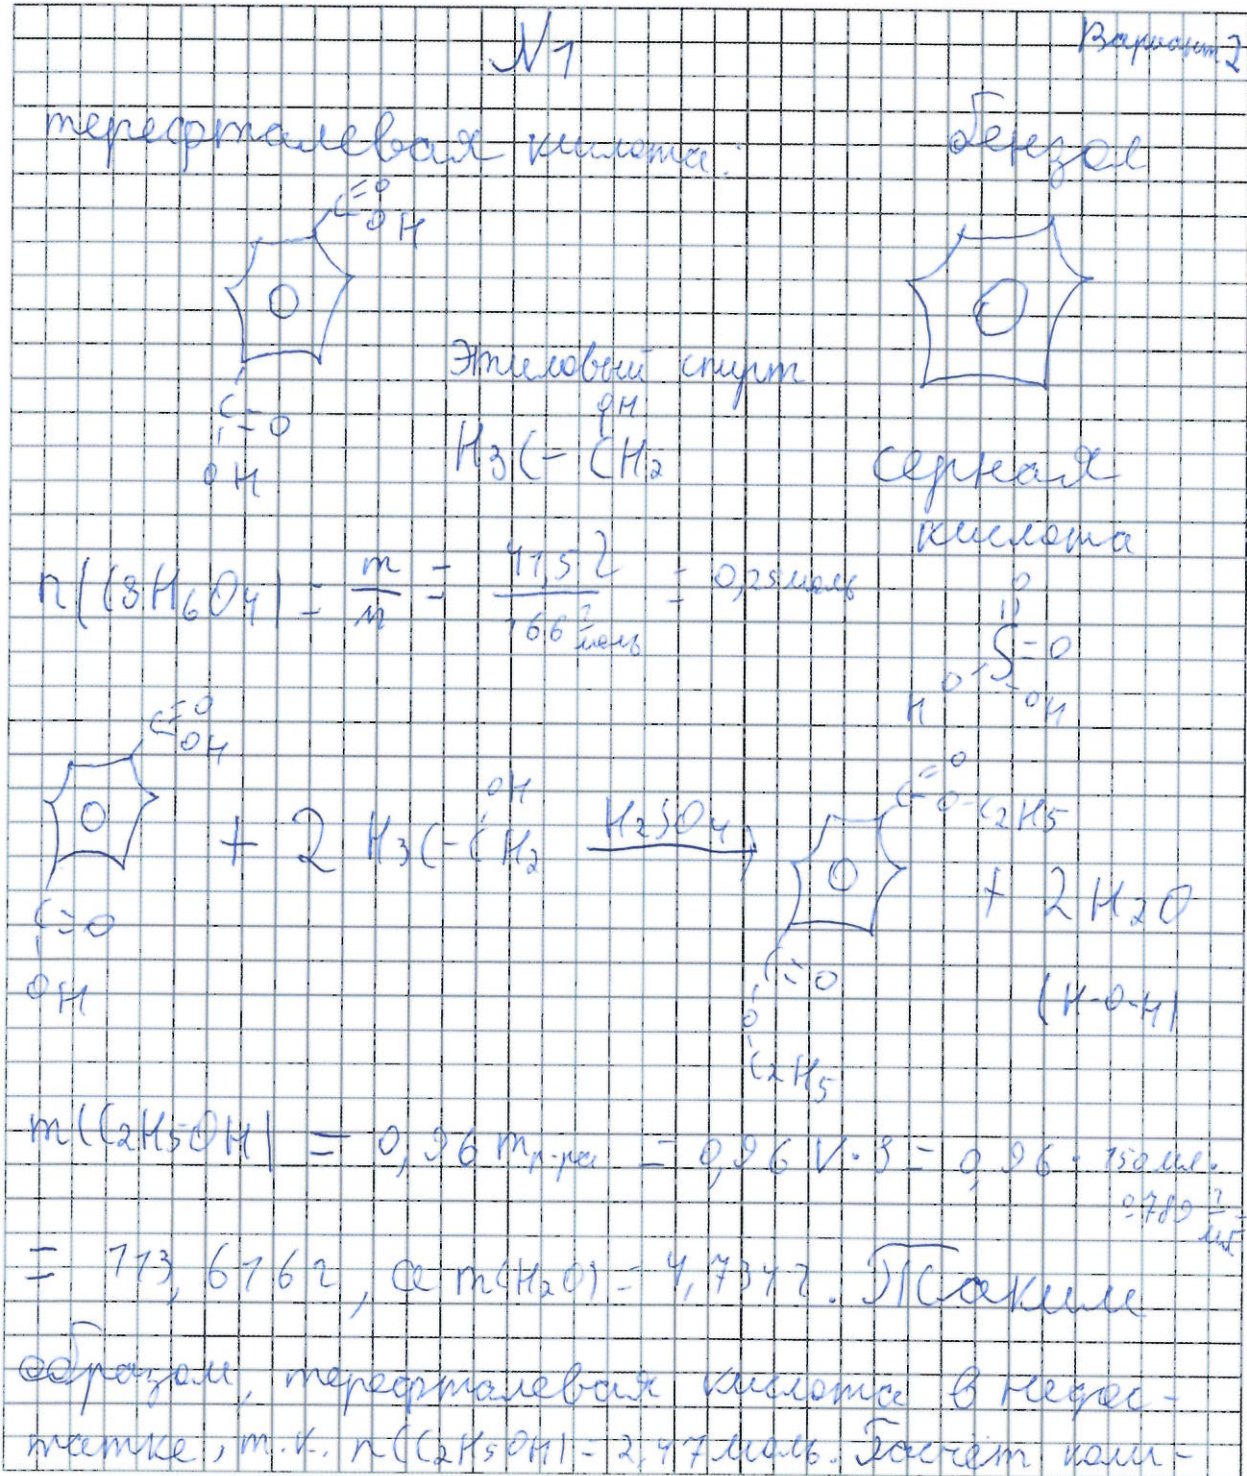 Вариант 2
№1
терефталевая кислота:
бензол
C=O
OH
Этиловый спирт
OH
H3C-CH2
C=O
OH
серная
кислота
n(C8H6O4) = m/M = 41,5 г / 166 г/моль = 0,25 моль
O
S=O
H O OH
C=O
OH
+ 2 H3C-CH2
OH
H2SO4
C=O
O-C2H5
+ 2H2O
C=O
OH
C=O
O
C2H5
(H-O-H)
m(C2H5OH) = 0,96 mр-ра = 0,96 V·ρ = 0,96 · 150 мл ·
0,789 г/мл =
= 113,616 г, а m(H2O) = 4,734 г. Таким
образом, терефталевая кислота в недос-
татке, т.к. n(C2H5OH) = 2,47 моль. Расчёт коли-